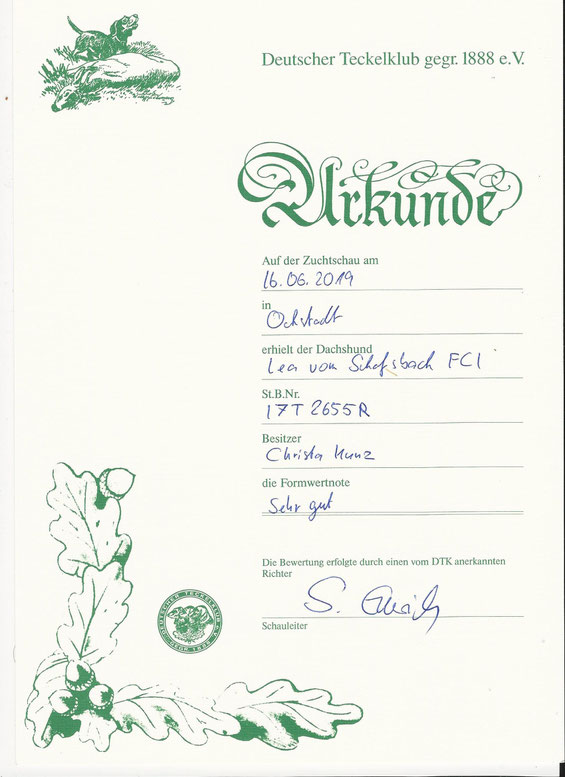 Deutscher Teckelklub gegr. 1888 e.V.
Urkunde
Auf der Zuchtschau am
16.06.2019
in
Ockstadt
erhielt der Dachshund
Lea vom Schafsbach FCI
St.B.Nr.
17T 2655R
Besitzer
Christa Munz
die Formwertnote
Sehr gut
Die Bewertung erfolgte durch einen vom DTK anerkannten
Richter
S.
Schauleiter
DEUTSCHER TECKELKLUB E.V.
GEGR. 1888